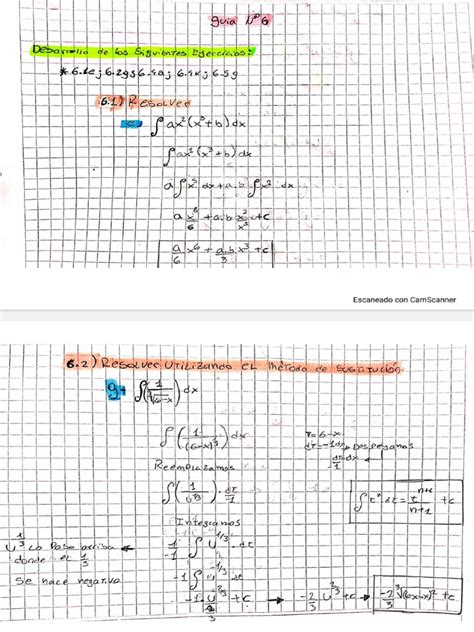 guía Nº6
Desarrollo de los Siguientes Ejercicios:
* 6.1e; 6.2g; 6.4a; 6.4k; 6.5g
6.1) Resolver
e- ∫ax²(x³+b)dx
∫ax²(x³+b)dx
a∫x⁵ dx + a.b ∫x² dx
a x⁶/6 + a.b x²/x³ + c
a/6 x⁶ + a.b/3 x³ + c
Escaneado con CamScanner
6.2) Resolver Utilizando el método de sustitución.
g- ∫(1/∛(6-x))dx
∫(1/(6-x)^(1/3))dx
T=6-x
dT=-1dx, Despejamos
dT/-1 = dx
Reemplazamos
∫(1/U^(1/3)) . dT/-1
∫tⁿ dt = t^(n+1)/(n+1) + c
Integramos
U^(1/3) Lo Pase arriba
donde el 1/3
Se hace negativo
1/-1 ∫U^(-1/3) . dt
-1∫U^(-1/3) dt